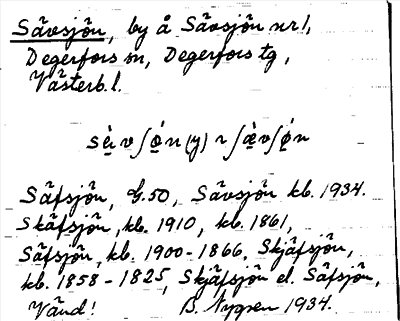 Sävsjön, by å Sävsjön nr 1,
Degerfors sn, Degerfors tg,
Västerb. l.
sè̱v ʃǿ̱n (y) ~ ʃæ̱̀vʃǿ̱n
Säfsjön, G.50, Sävsjön kb. 1934.
Skäfsjön, kb. 1910, kb. 1861,
Säfsjön, kb. 1900-1866, Skjäfsjön,
kb. 1858-1825, Skjäfsjön el. Säfsjön,
Vänd! B. Nygren 1934.